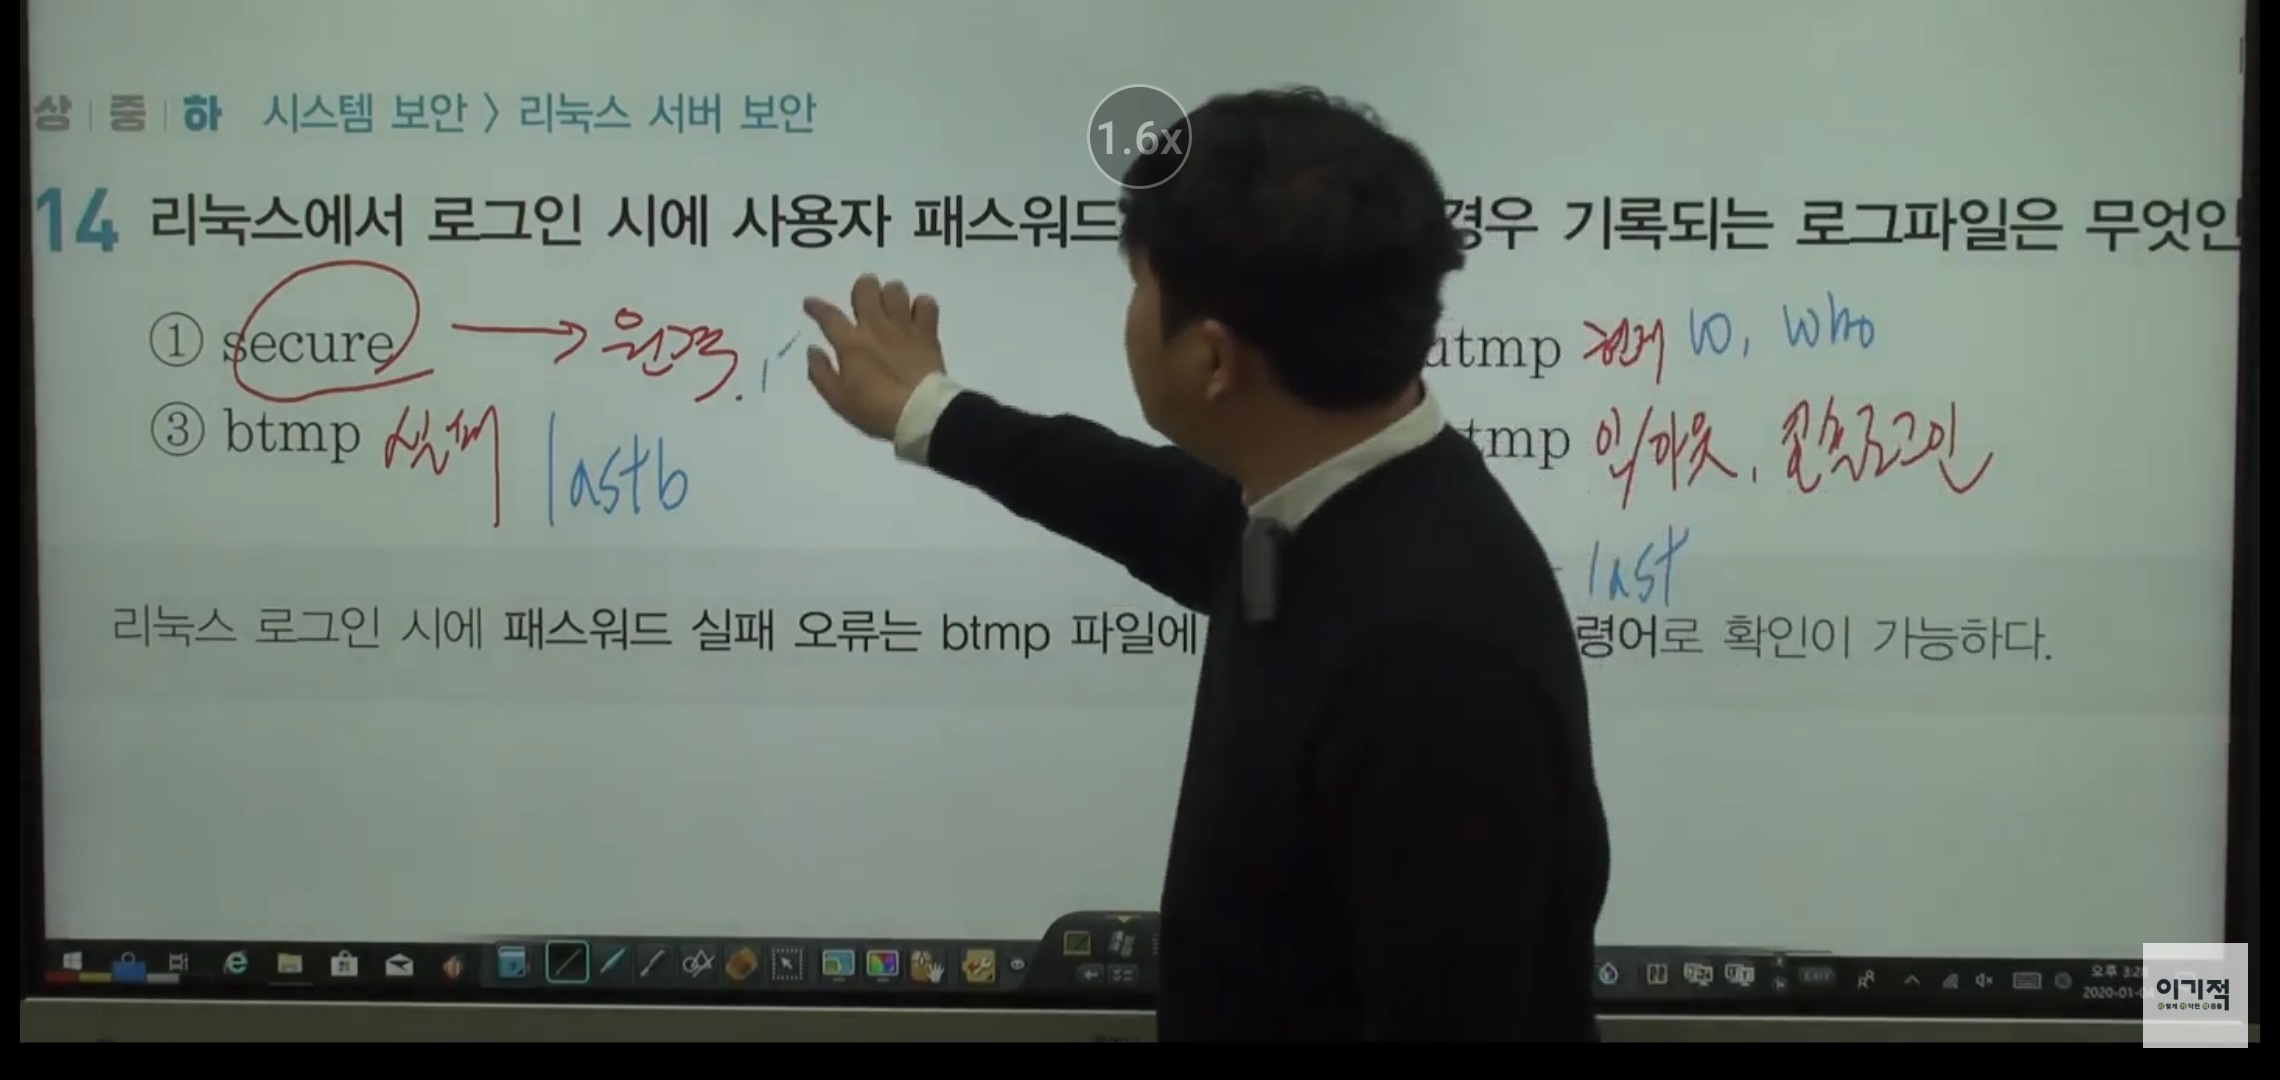 상 | 중 | 하 시스템 보안 > 리눅스 서버 보안
1.6x
14 리눅스에서 로그인 시에 사용자 패스워드 경우 기록되는 로그파일은 무엇인
① secure → 원격. utmp 현재 w, who
③ btmp 실패 lastb tmp 인/아웃, 콘솔로그인
last
리눅스 로그인 시에 패스워드 실패 오류는 btmp 파일에 령어로 확인이 가능하다.
오후 3:28
2020-01-04
이기적